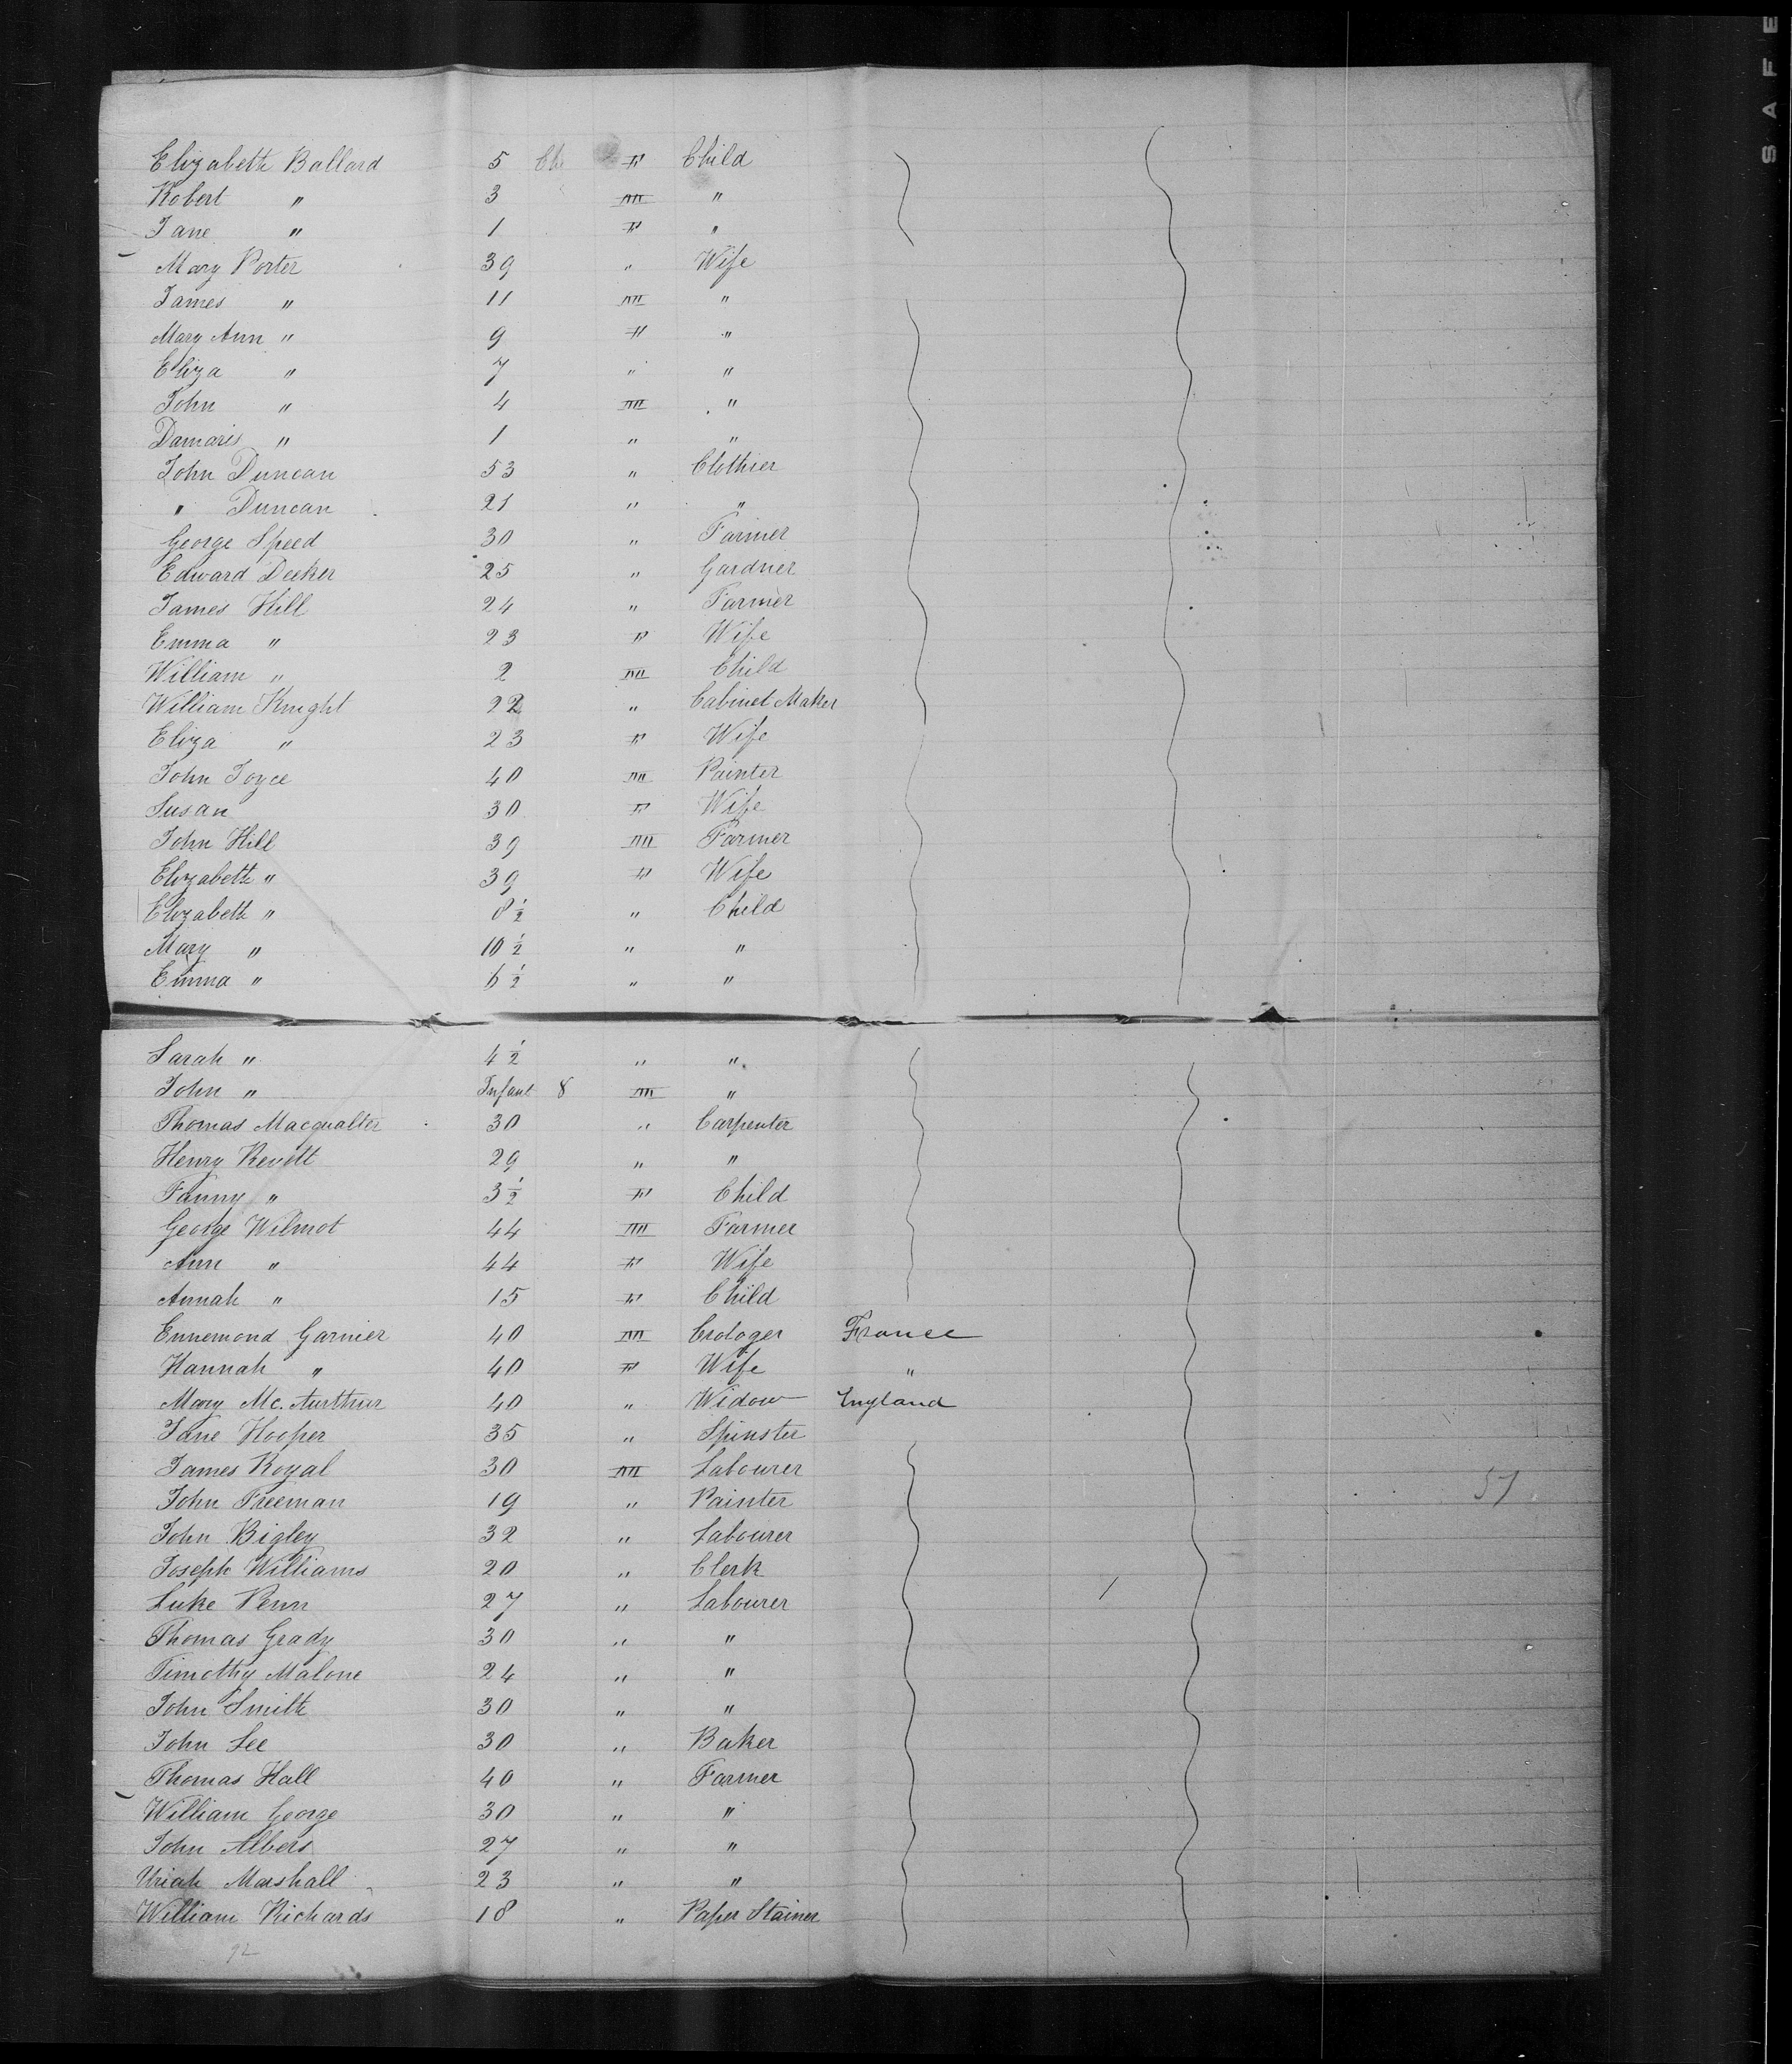 Elizabeth Ballard 5 Ch F Child
Robert " 3 M "
Jane " 1 F "
Mary Porter 39 " Wife
James " 11 M "
Mary Ann " 9 F "
Eliza " 7 " "
John " 4 M "
Damaris " 1 " "
John Duncan 53 " Clothier
" Duncan 21 " "
George Speed 30 " Farmer
Edward Decker 25 " Gardner
James Hill 24 " Farmer
Emma " 23 F Wife
William " 2 M Child
William Knight 22 " Cabinet Maker
Eliza " 23 F Wife
John Joyce 40 M Painter
Susan 30 F Wife
John Hill 39 M Farmer
Elizabeth " 39 F Wife
Elizabeth " 8 1/2 " Child
Mary " 10 1/2 " "
Emma " 6 1/2 " "
Sarah " 4 1/2 " "
John " Infant 8 M "
Thomas Macqualter 30 " Carpenter
Henry Revett 29 " "
Fanny " 3 1/2 F Child
George Wilmot 44 M Farmer
Ann " 44 F Wife
Annah " 15 F Child
Ennemond Garnier 40 M France
Hannah " 40 F Wife "
Mary Mc. Aurthur 40 " Widow England
Jane Hooper 35 " Spinster
James Royal 30 M Labourer
John Freeman 19 " Painter
John Bigley 32 " Labourer
Joseph Williams 20 " Clerk
Luke Penn 27 " Labourer
Thomas Grady 30 " "
Timothy Malone 24 " "
John Smith 30 " "
John Lee 30 " Baker
Thomas Hall 40 " Farmer
William George 30 " "
John Albers 27 " "
Uriah Marshall 23 " "
William Richards 18 " Paper Stainer
92
57
SAFE